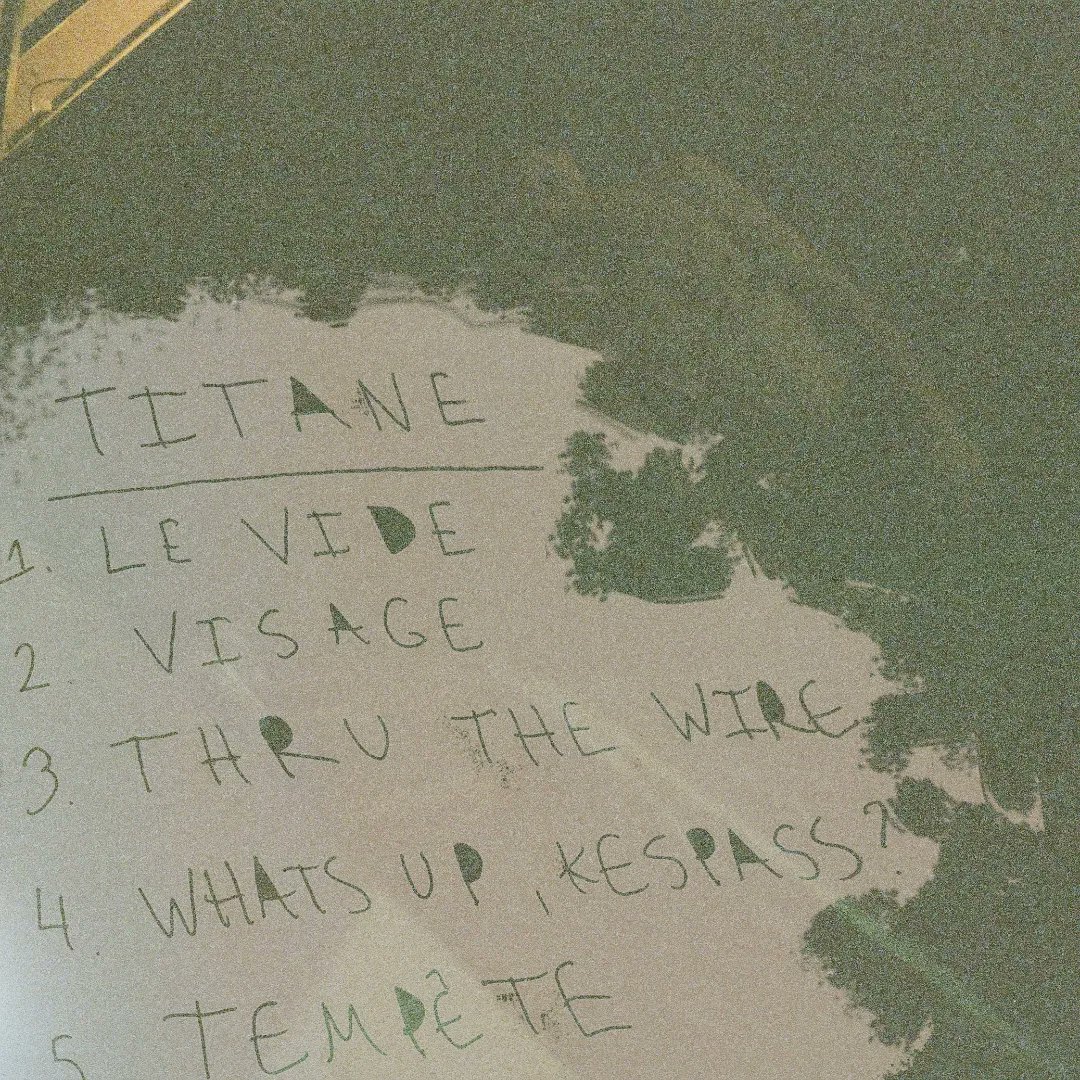 TITANE
1. LE VIDE
2. VISAGE
3. THRU THE WIRE
4. WHATS UP, KESPASS?
5. TEMPÊTE